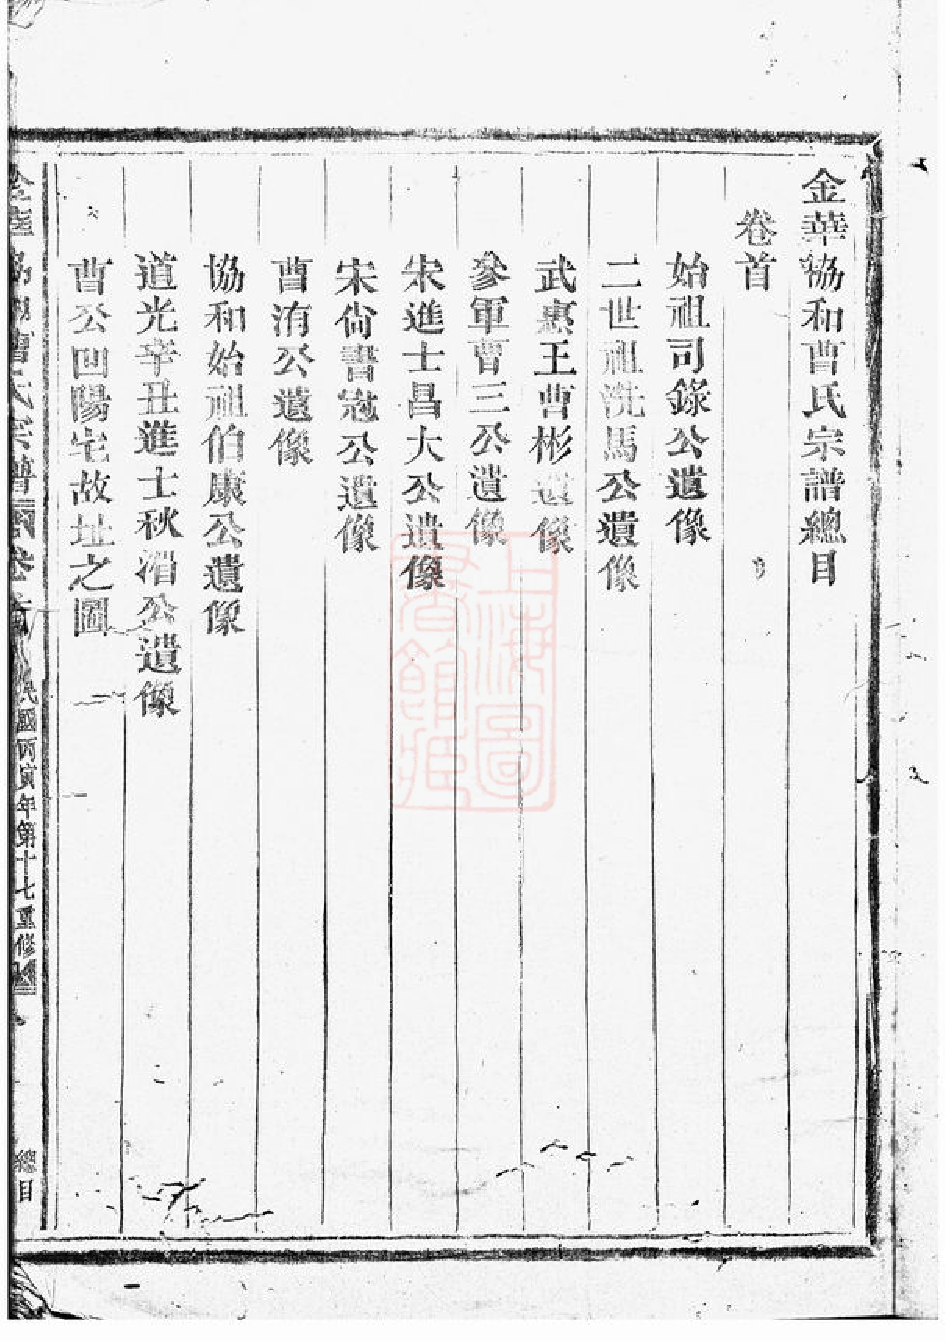 金華協和曹氏宗譜總目
卷首
始祖司錄公遺像
二世祖洗馬公遺像
武惠王曹彬遺像
參軍曹三公遺像
宋進士昌大公遺像
宋尙書冠公遺像
曹洧公遺像
協和始祖伯康公遺像
道光辛丑進士秋湄公遺像
曹公凹陽宅故址之圖
金華協和曹氏宗譜 卷首 民國丙寅年第十七重修 總目
上海圖
書館藏